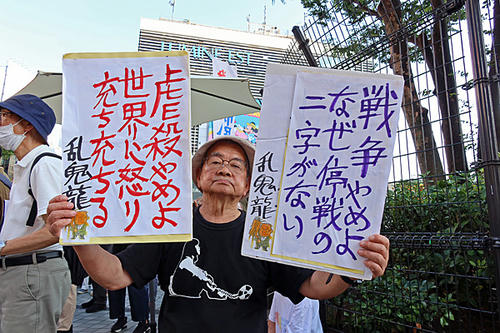 LUMINE EST
虐殺やめよ
世界に怒り
充ち充ちる
乱鬼龍
戦争やめよ
なぜ停戦の
二字がない
乱鬼龍